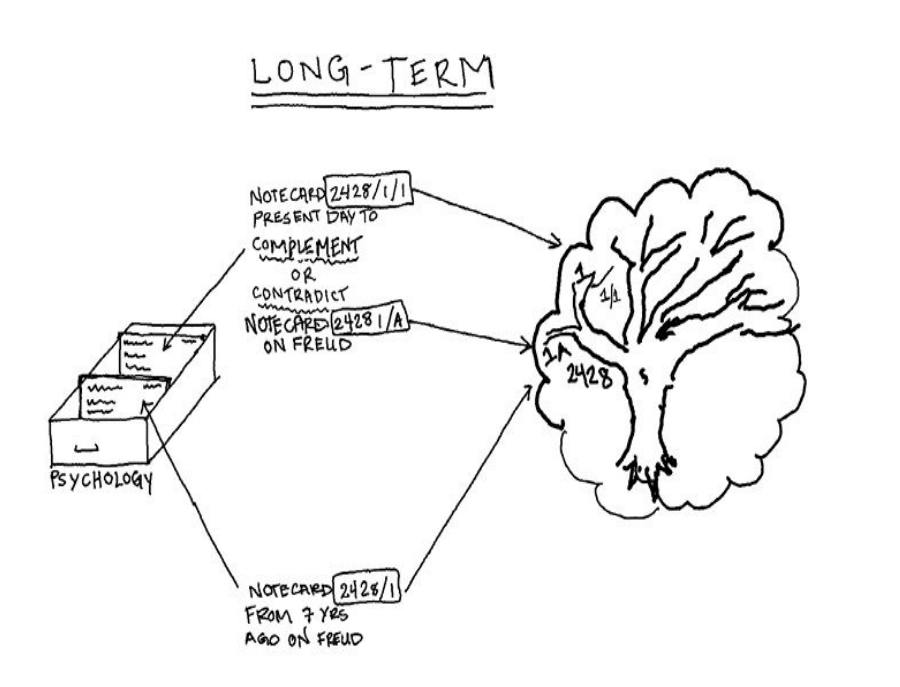 LONG-TERM
NOTECARD 2428/1/1
PRESENT DAY TO
COMPLEMENT
OR
CONTRADICT
NOTECARD 2428 1/A
ON FREUD
1
1/1
1A
2428
S
PSYCHOLOGY
NOTECARD 2428/1
FROM 7 YRS
AGO ON FREUD